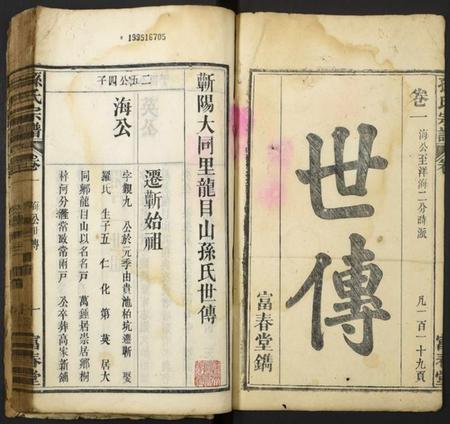 孫氏宗譜
卷一
富春堂
卷一
海公至洋海二分時派
凡一百一十九頁
世傳
富春堂鐫
199516705
蘄陽大同里龍目山孫氏世傳
遷蘄始祖
二五公四子
海公
字觀九 公於元季由貴池柏坑遷蘄 娶
羅氏 生子五 仁 化 第 英 居大
同鄉龍目山以名名戶 萬鍾居崇居鄉桐
梓河分灑常政常兩戶 公卒葬高家新鋪
孫氏宗譜
卷一
海公世傳
一
富春堂